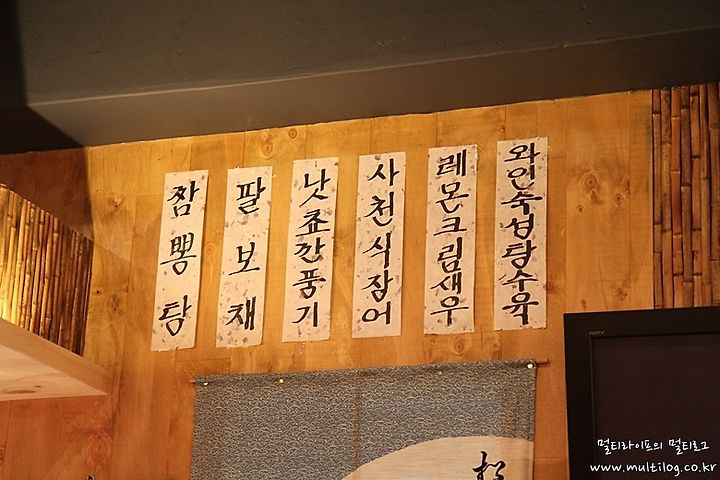 짬뽕탕
팔보채
낫쬬깐풍기
사천식장어
레몬크림새우
와인숙성탕수육
HDTV
멀티라이프의 멀티로그
www.multilog.co.kr